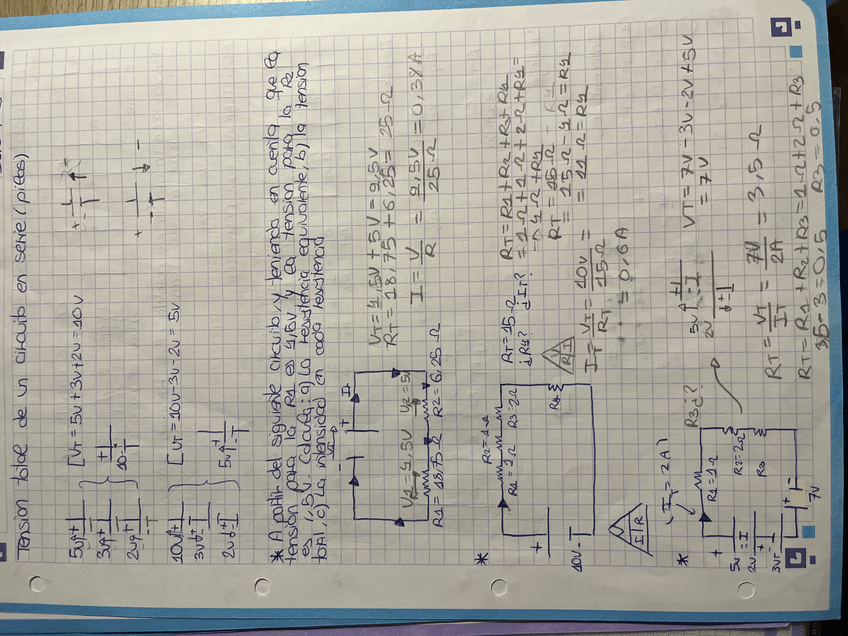 Tension total de un circuito en serie (pilas)
5V
3V
2V
10
[VT = 5V + 3V + 2V = 10V
10V
3V
2V
5V
[VT = 10V - 3V - 2V = 5V
* A partir del siguiente circuito y teniendo en cuenta que la
tensión para la R1 es 4,5V y la tension para la R2
es 1,5V. Calcula: a) La resistencia equivalente, b) la tension
total, c) La intensidad en cada resistencia
VT
IT
V1 = 4,5V V2 = 5V
R1 = 18.75Ω R2 = 6,25Ω
VT = 4,5V + 5V = 9,5V
RT = 18,75 + 6,25 = 25Ω
I = V/R = 9,5V/25Ω = 0,38A
*
R2 = 1Ω
R1 = 1Ω R3 = 2Ω
R4
10V
RT = 15Ω
¿R4? ¿IT?
V
I R
V
R I
RT = R1 + R2 + R3 + R4
= 1Ω + 1Ω + 2Ω + R4 =
= 4Ω + R4
RT = 15Ω - R4
= 15Ω - 4Ω = R4
= 11Ω = R4
IT = VT/RT = 10V/15Ω =
= 0,6A
*
(IT = 2A)
R3 ¿?
R1 = 1Ω
R2 = 2Ω
R3
5V
2V
3V
7V
5V
2V
VT = 7V - 3V - 2V + 5V
= 7V
RT = VT/IT = 7V/2A = 3,5Ω
RT = R1 + R2 + R3 = 1Ω + 2Ω + R3
3,5 - 3 = 0,5 R3 = 0,5